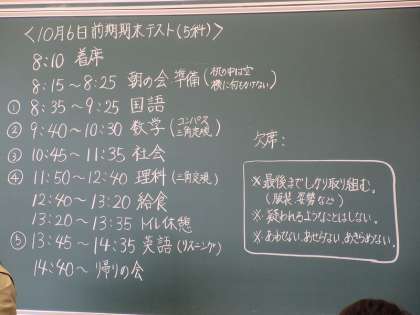 ＜10月6日前期期末テスト(5科)＞
8:10 着席
8:15～8:25 朝の会 準備(机の中は空 横に何もかけない)
① 8:35～9:25 国語
② 9:40～10:30 数学(コンパス 三角定規)
③ 10:45～11:35 社会
④ 11:50～12:40 理科(三角定規)
12:40～13:20 給食
13:20～13:35 トイレ休憩
⑤ 13:45～14:35 英語(リスニング)
14:40～ 帰りの会
欠席:
※最後までしっかり取り組む。
(服装、姿勢など)
※疑われるようなことはしない。
※あわてない、あせらない、あきらめない。